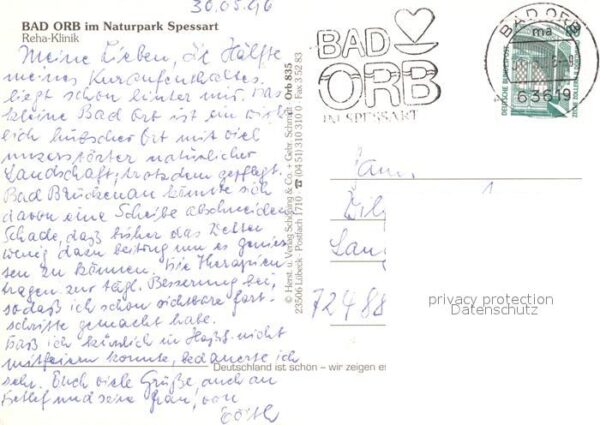 30.05.96
BAD ORB im Naturpark Spessart
Reha-Klinik
Meine Lieben, die Hälfte
meines Kuraufenthaltes
liegt schon hinter mir. Das
kleine Bad Orb ist ein wirk
lich hübscher Ort mit viel
unzerstörter natürlicher
Landschaft, trotzdem gepflegt.
Bad Brückenau könnte sich
davon eine Scheibe abschneiden
Schade, daß bisher das Wetter
wenig dazu beitrug um es genies-
sen zu können. Die Therapien
tragen zur tägl. Besserung bei,
so daß ich schon sichtbare Fort-
schritte gemacht habe.
Daß ich kürzlich in nicht
mitfeiern konnte, bedauerte ich
sehr. Euch viele Grüße, auch an
Detlef und seine Frau, von
© Herst. u. Verlag Schöning & Co. + Gebr. Schmidt · Orb 835
23506 Lübeck · Postfach 1710 · ☎ (04 51) 310 310 · Fax 3 52 83
BAD
ORB
IM SPESSART
BAD ORB
ma
63619
DEUTSCHE BUNDESPOST
Fam.
72488
Deutschland ist schön – wir zeigen es
privacy protection
Datenschutz